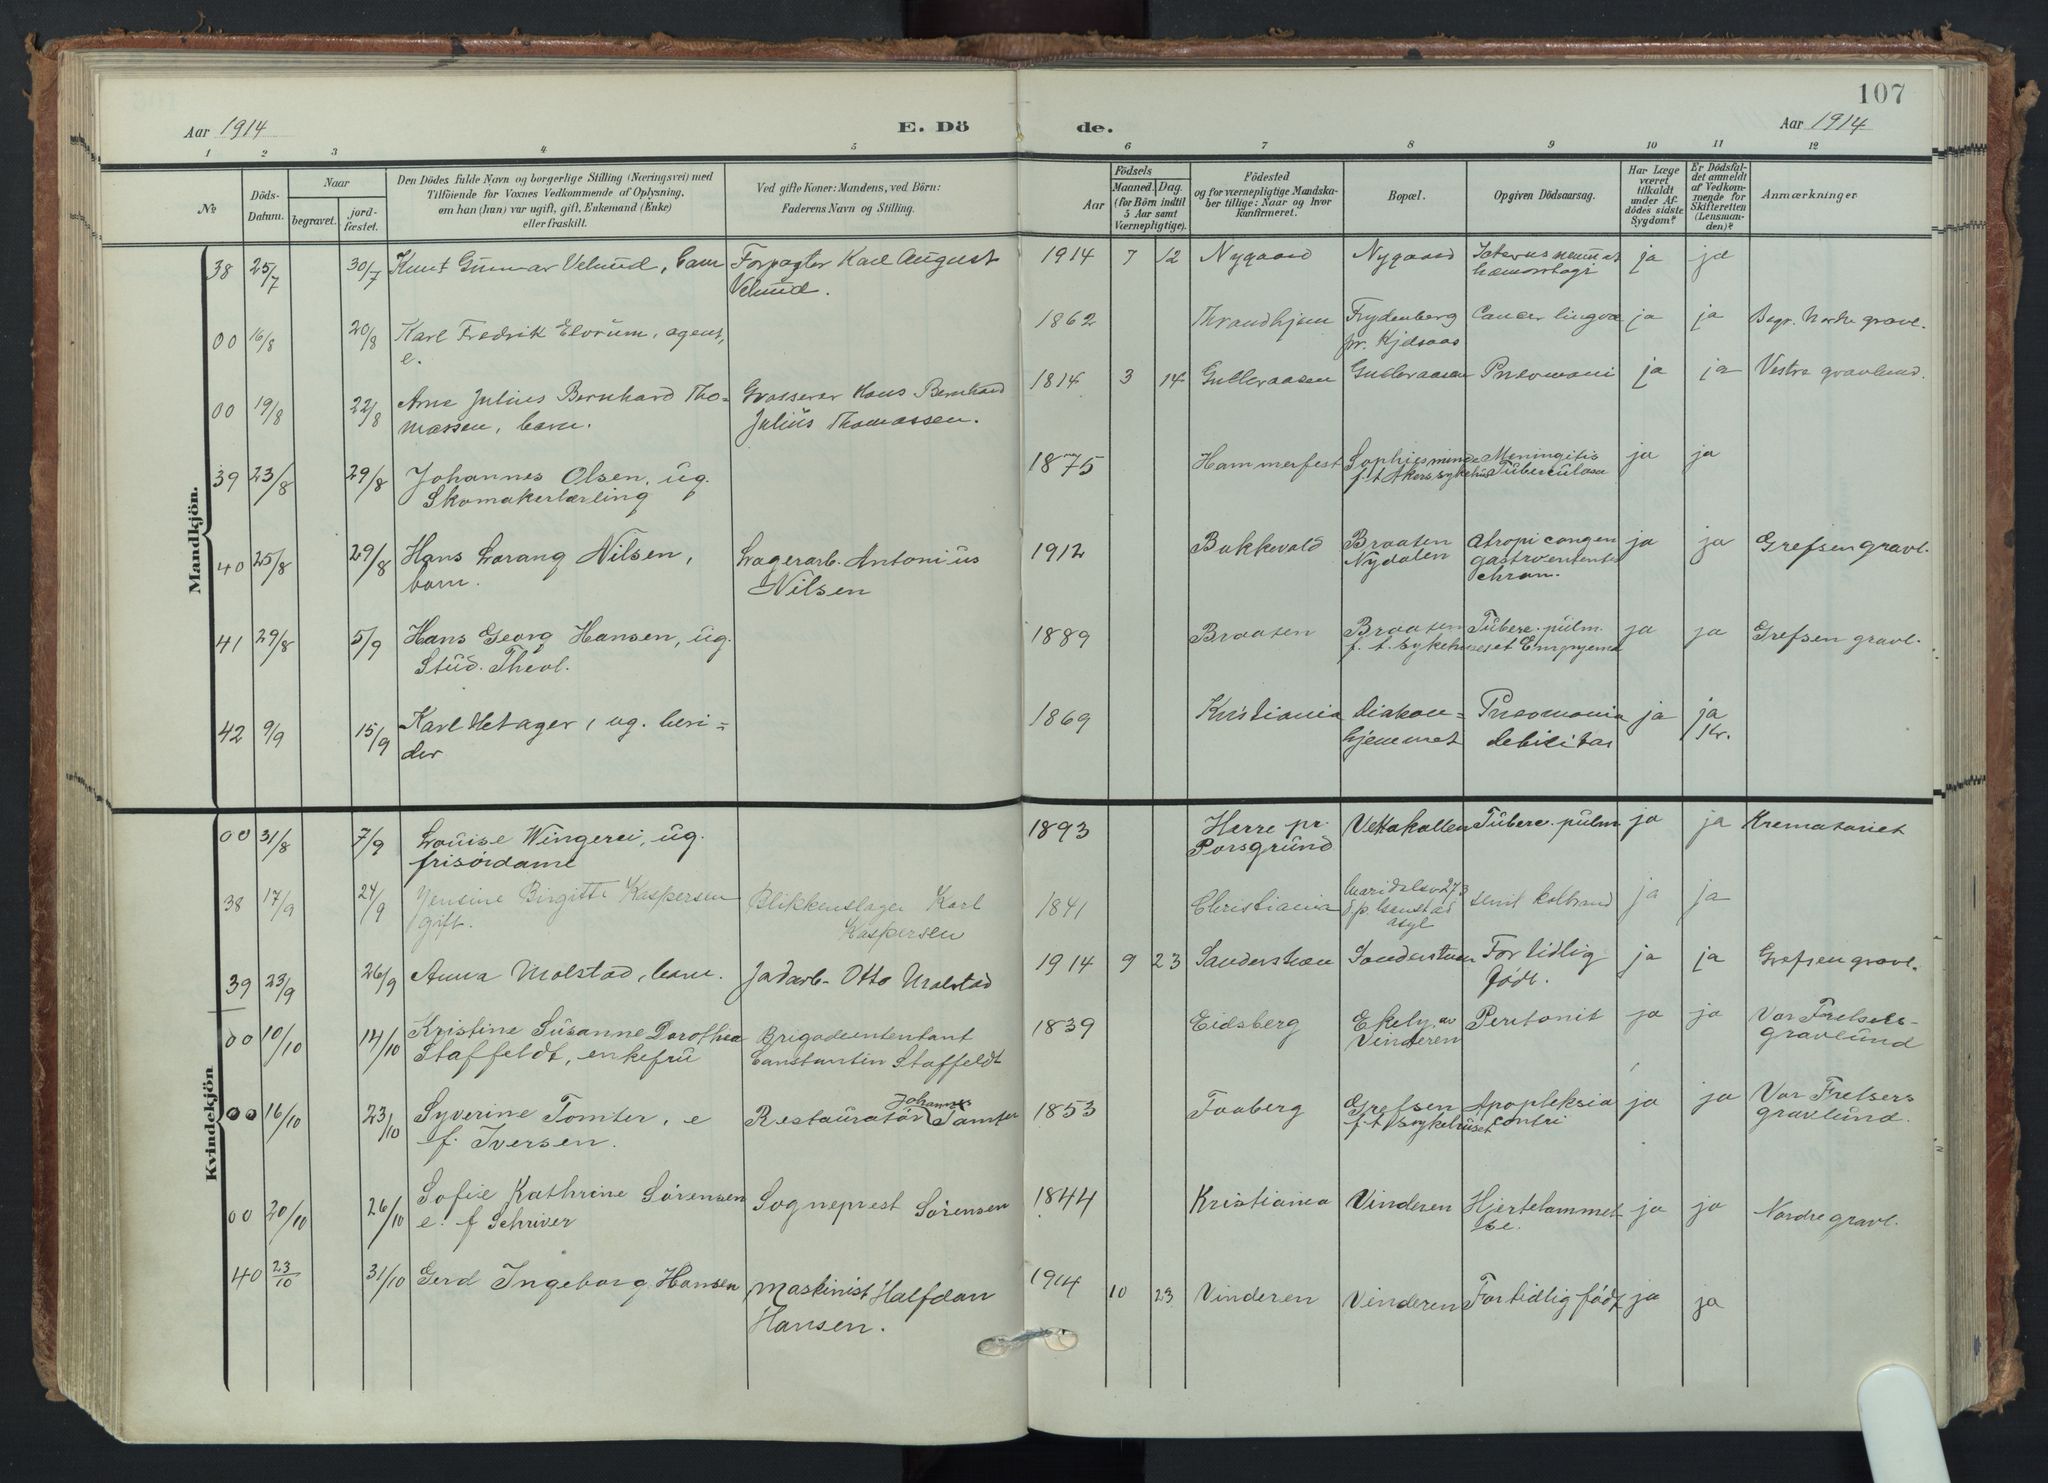 107
Aar 1914
E. Dö
de.
Aar 1914
1 2 3 4 5 6 7 8 9 10 11 12
№
Döds-
Datum.
Naar
begravet.
jord-
fæstet.
Den Dödes fulde Navn og borgerlige Stilling (Næringsvei) med
Tilföiende for Voxnes Vedkommende af Oplysning,
om han (hun) var ugift, gift, Enkemand (Enke)
eller fraskilt.
Ved gifte Koner: Mandens, ved Börn:
Faderens Navn og Stilling.
Aar
Födsels
Maaned. Dag.
(for Börn indtil
5 Aar samt
Værnepligtige).
Födested
og for værnepligtige Mandska-
ber tillige: Naar og hvor
konfirmeret.
Bopæl.
Opgiven Dödsaarsag.
Har Læge
været
tilkaldt
under Af-
dödes sidste
Sygdom?
Er Dödsfal-
det anmeldt
af Vedkom-
mende for
Skifteretten
(Lensman-
den)?
Anmærkninger
Mandkjön.
38 25/7 30/7 Knut Gunnar Velund, barn Forpagter Karl August 1914 7 12 Nygaard Nygaard ja ja
Velund.
00 16/8 20/8 Karl Fredrik Elvrum, agent, 1862 Thrandhjem Frydenberg Cancer lingvæ ja ja Begr. Nordre gravl.
e. pr. Kjelsaas
00 19/8 22/8 Arne Julius Bernhard Tho- Grosserer Hans Bernhard 1814 3 14 Gulleraasen Gulleraasen Pneomoni ja ja Vestre gravlund.
massen, barn. Julius Thomassen.
39 23/8 29/8 Johannes Olsen, ug. 1875 Hammerfest Sophiesminde Meningitis ja ja
Skomakerlærling f. t. Akers sykehus Tuberculosa
40 25/8 29/8 Hans Lorang Nilsen, Lagerarb. Antonius 1912 Bakkevold Braaten Atropi congen ja ja Grefsen gravl.
barn. Nilsen Nydalen chron.
41 29/8 5/9 Hans Georg Hansen, ug. 1889 Braaten Braaten Tuberc. pulm. ja ja Grefsen gravl.
Stud. Theol. f. t. sykehuset Empyema
42 9/9 15/9 Karl Hetager, ug. beri- 1869 Kristiania Diakon- Pneomonia ja ja
der hjemmet debilitas Kr.
Kvindekjön
00 31/8 7/9 Louise Wingerei, ug. 1893 Herre pr. Vettakollen Tuberc. pulm ja ja Krematoriet
frisördame Porsgrund
38 17/9 24/9 Jensine Birgitte Kaspersen Blikkenslager Karl 1841 Christiania Maridalsv 273 senil kolbrand ja ja
gift. Kaspersen asyl
39 23/9 26/9 Anna Molstad, barn. Jadarb. Otto Molstad 1914 9 23 Sanderstuen Sanderstuen For tidlig ja ja Grefsen gravl.
född.
00 10/10 14/10 Kristine Susanne Dorothea Brigadeintentant 1839 Eidsberg Ekely av Peritonit ja ja Vor Frelsers-
Staffeldt, enkefru Constantin Staffeldt Vinderen gravlund
00 16/10 23/10 Syverine Tomter, e Restauratör Johannes Tomter 1853 Faaberg Grefsen Apopleksia ja ja Vor Frelsers
f. Iversen. f. t. sykehuset gravlund.
00 20/10 26/10 Sofie Kathrine Sørensen Sogneprest Sørensen 1844 Kristiania Vinderen Hjertelammet ja ja Nordre gravl.
e. f Schriver se.
40 23/10 31/10 Gerd Ingeborg Hansen Maskinist Halfdan 1914 10 23 Vinderen Vinderen For tidlig född ja ja
Hansen.